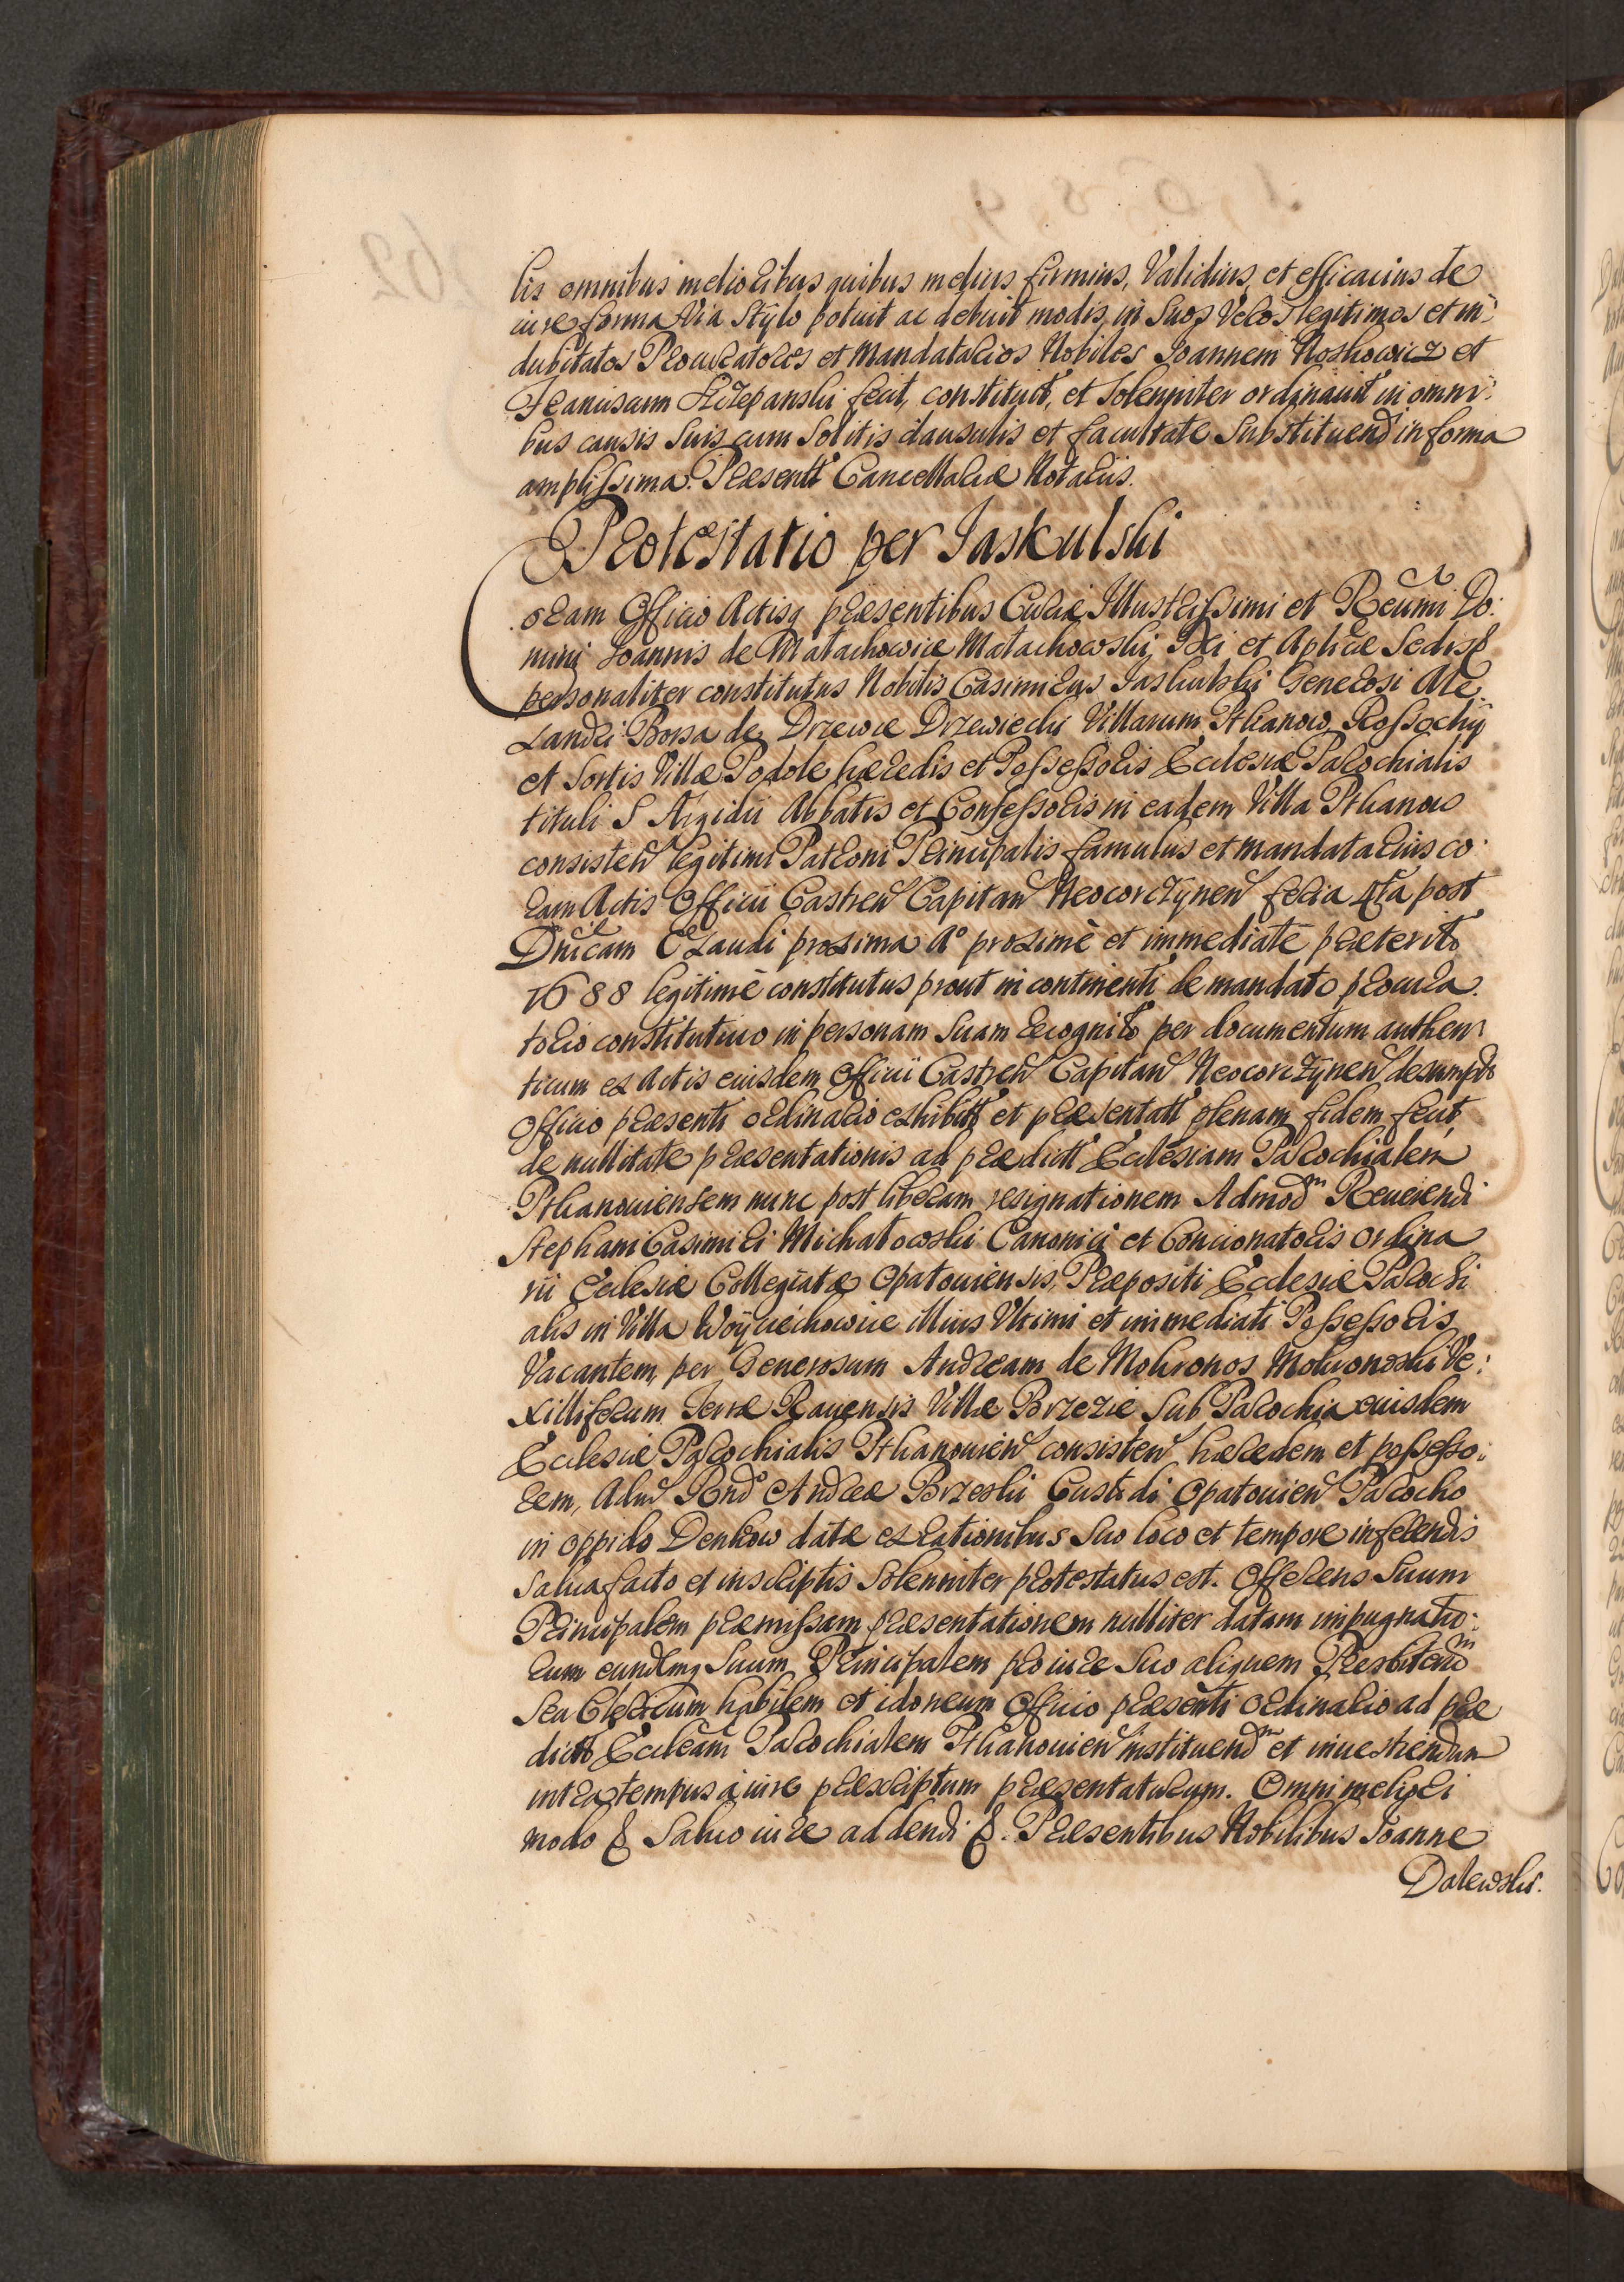 lis omnibus melioribus quibus melius firmius, Validius, et efficacius de
iure forma Via Stÿlo potuit ac debuit modis, in Suos Veros legitimos et in:
dubitatos Procuratores et Mandatarios Nobiles Ioannem Noskowicz et
Franciscum Szczepanski fecit, constituit, et Solenniter ordinauit in omni:
bus causis Suis cum Solitis clausulis et facultate Substituend in forma
amplissima. Præsentt Cancellariæ Notariis.
Protestatio per Jaskulski
Coram Officio Actisq præsentibus Curiæ Illustrissimi et Reumi Do:
mini Ioannis de Małachowice Małachowski, Dei et Aplicæ Sedis &
personaliter constitutus Nobilis Casimirus Jaskulski Generosi Ale
xandri Borsa de Drzewce Drzewiecki Villarum Pthanow, Rossochÿ
et Sortis Villæ Podole hæredis et Possessoris Ecclesiæ Parochialis
tituli S Ægidii Abbatis et Confessoris in eadem Villa Pthanow
consisten legitimi Patroni Principalis famulus et mandatarius co
ram Actis Officii Castren Capitan Neocorczÿnen feria 4ta post
Dnicam Exaudi proxima Aº proximè et immediatè præterito
1688 legitimè constitutus prout in continenti de mandato procura
torio constitutiuo in personam Suam recognito per documentum authen:
ticum ex Actis eiusdem Officii Castren Capitan Neocorczÿnen desumpto
Officio præsenti ordinario exhibitt et præsentatt plenam fidem fecit,
de nullitate præsentationis ad prædictt Ecclesiam Parochialem
Pthanouiensem nunc post liberam resignationem Admodm Reuerendi
Stephani Casimiri Michałowski Canonici et Concionatoris Ordina
rii Ecclesiæ Collegiatæ Opatouiensis, Præpositi Ecclesiæ Parochi
alis in Villa Woÿciechowice illius Vltimi et immediati Possessoris
Vacantem, per Generosum Andream de Mokronos Mokronoski Ve:
xilliferum Terræ Rauensis Villæ Brzezie Sub Parochia eiusdem
Ecclesiæ Parochialis Pthanouien consisten hæredem et possesso:
rem, Adm Rndo Andreæ Brzeski Custodi Opatouien Parocho
in oppido Denkow datæ ex rationibus Suo loco et tempore inferendis
Salua facto et inscriptis Solenniter protestatus est. Offerens Suum
Principalem præmissam præsentationem nulliter datam impugnatu:
rum eundemq Suum Principalem pro iure Suo aliquem Presbiterum
Seu Clericum habilem et idoneum Officio præsenti ordinario ad præ
dictt Eccleam Parochialem Pthanouien instituendm et inuestiendum
intra tempus à iure præscriptum præsentaturum. Omni meliori
modo & Saluo iure addendi &. Præsentibus Nobilibus Ioanne
Dalewski.